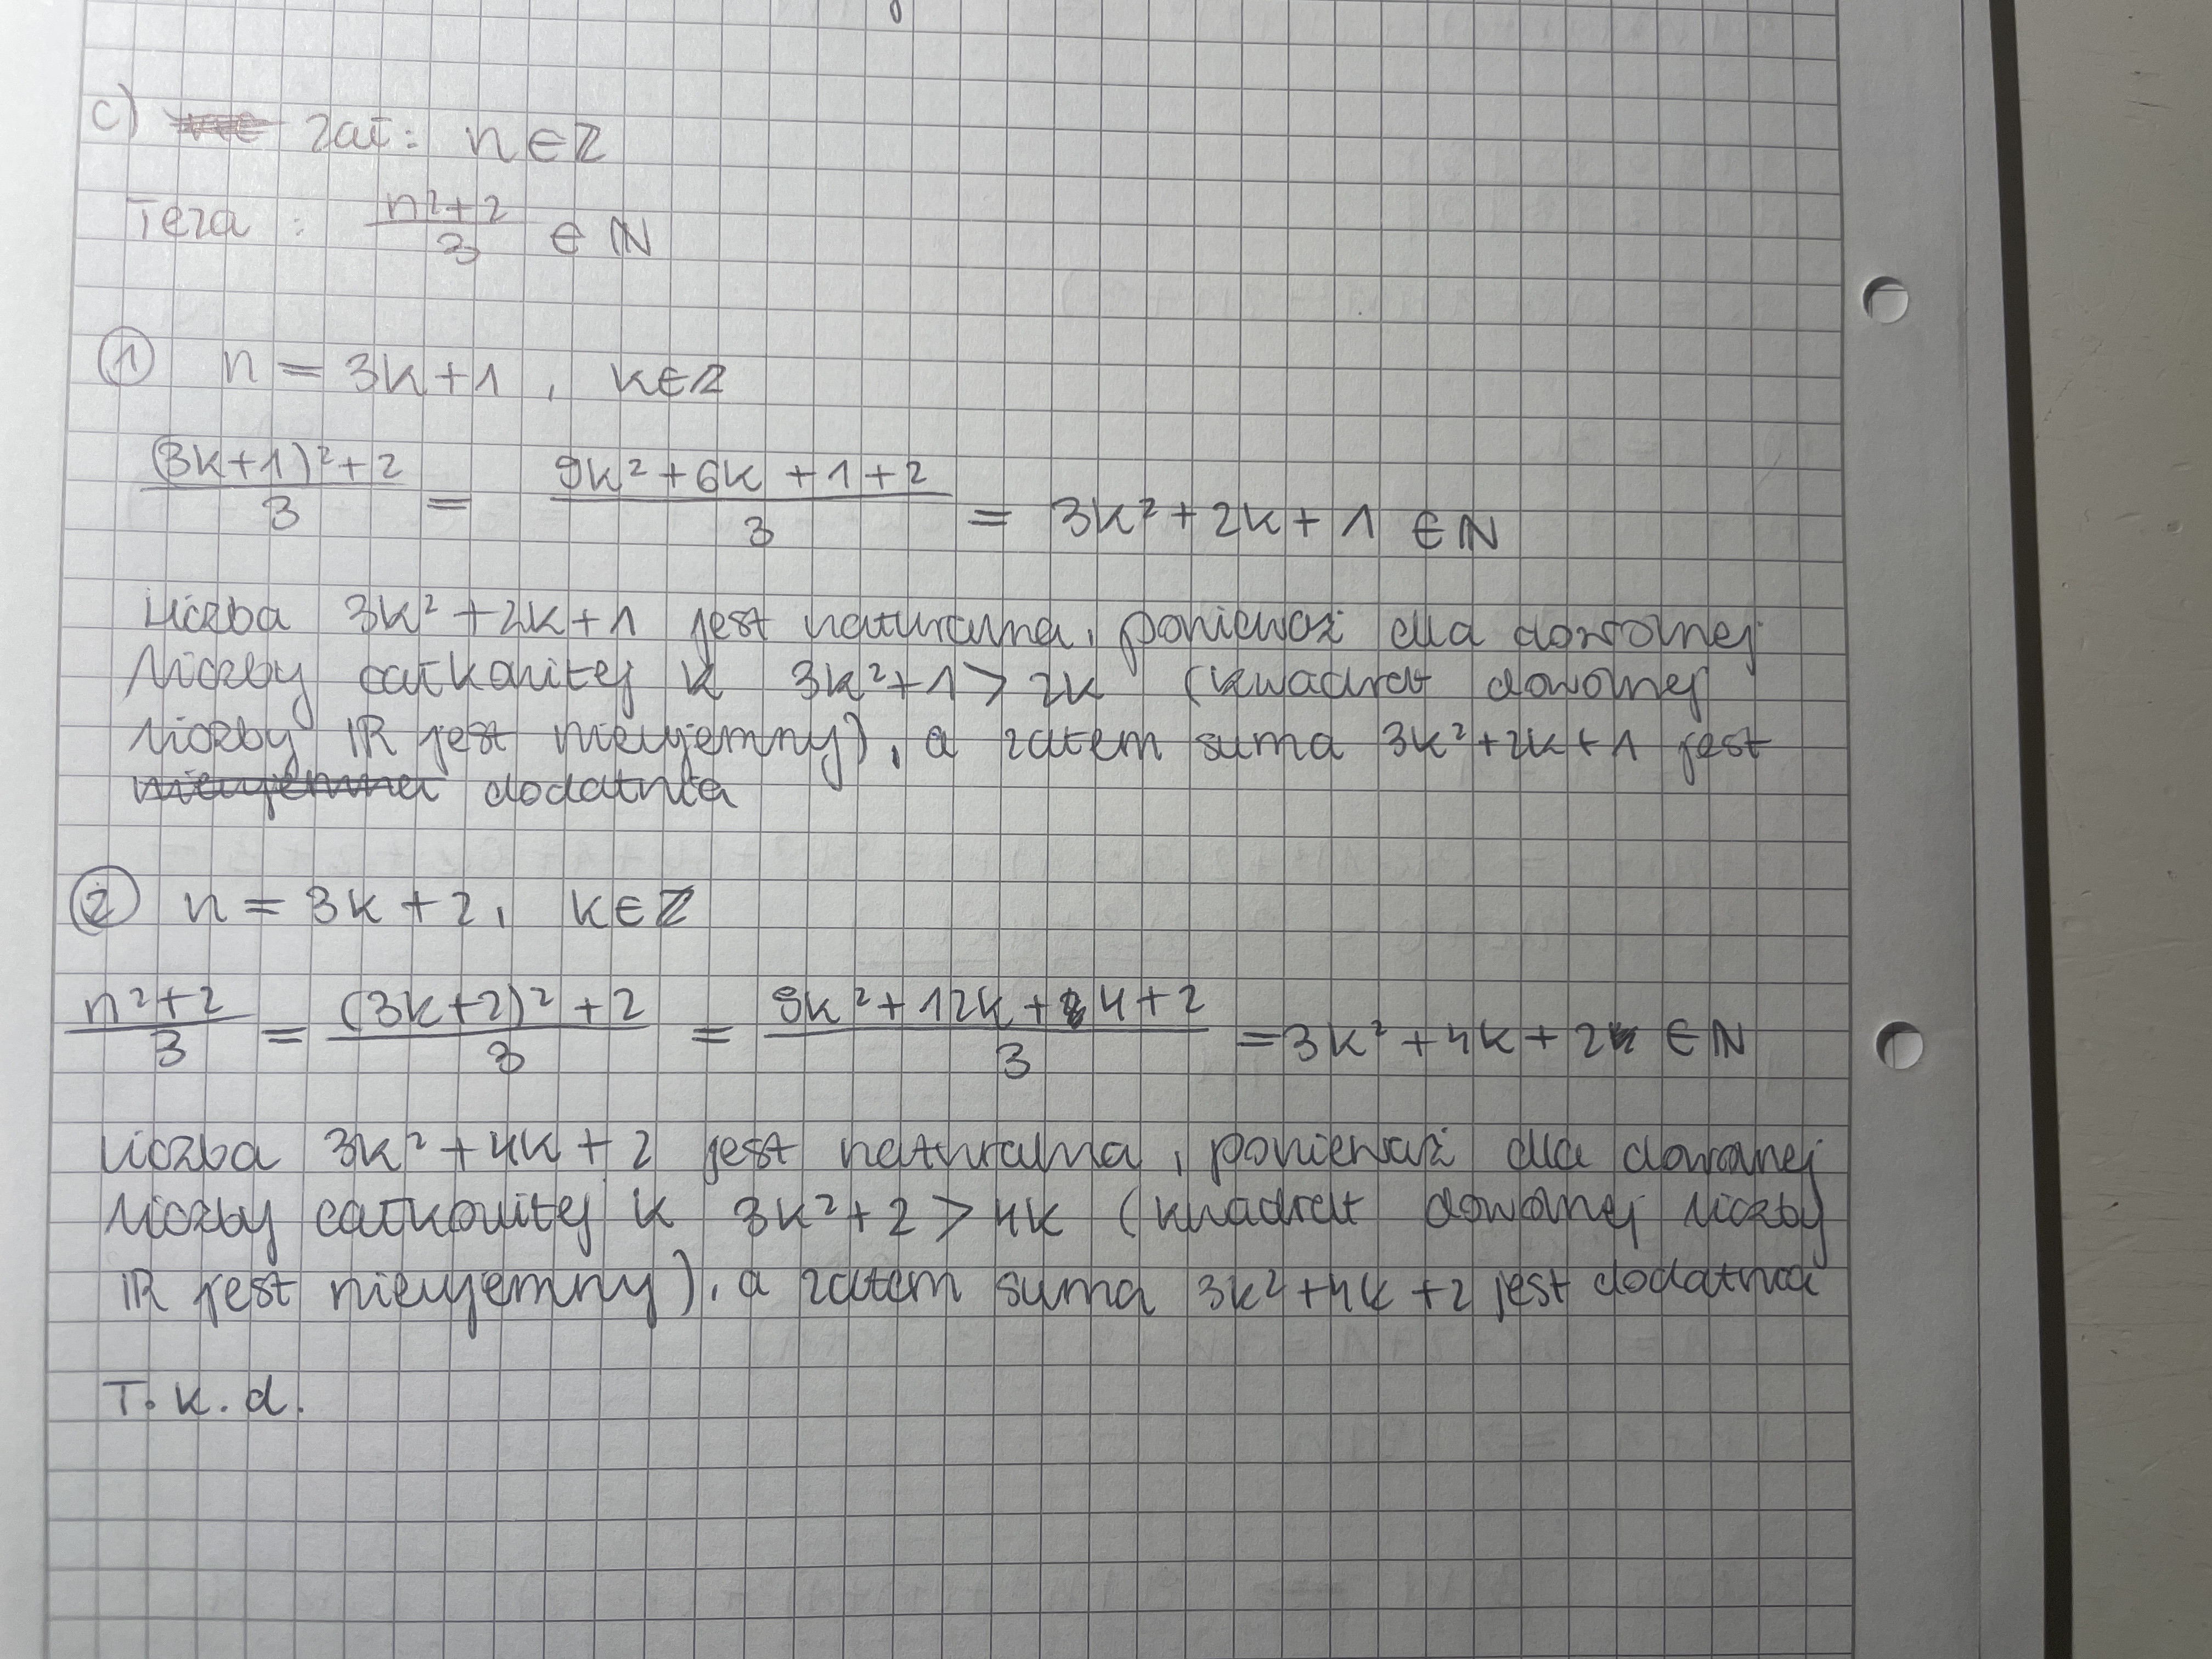 c) zał: n ∈ ℤ
Teza: (n²+2)/3 ∈ ℕ
① n = 3k+1, k∈ℤ
((3k+1)²+2)/3 = (9k²+6k+1+2)/3 = 3k²+2k+1 ∈ℕ
Liczba 3k²+2k+1 jest naturalna, ponieważ dla dowolnej
liczby całkowitej k 3k²+1>2k (kwadrat dowolnej
liczby ℝ jest nieujemny), a zatem suma 3k²+2k+1 jest
nieujemna dodatnia
② n = 3k+2, k∈ℤ
(n²+2)/3 = ((3k+2)²+2)/3 = (9k²+12k+4+2)/3 = 3k²+4k+2 ∈ℕ
Liczba 3k²+4k+2 jest naturalna, ponieważ dla dowolnej
liczby całkowitej k 3k²+2>4k (kwadrat dowolnej liczby
ℝ jest nieujemny), a zatem suma 3k²+4k+2 jest dodatnia
T.k.d.